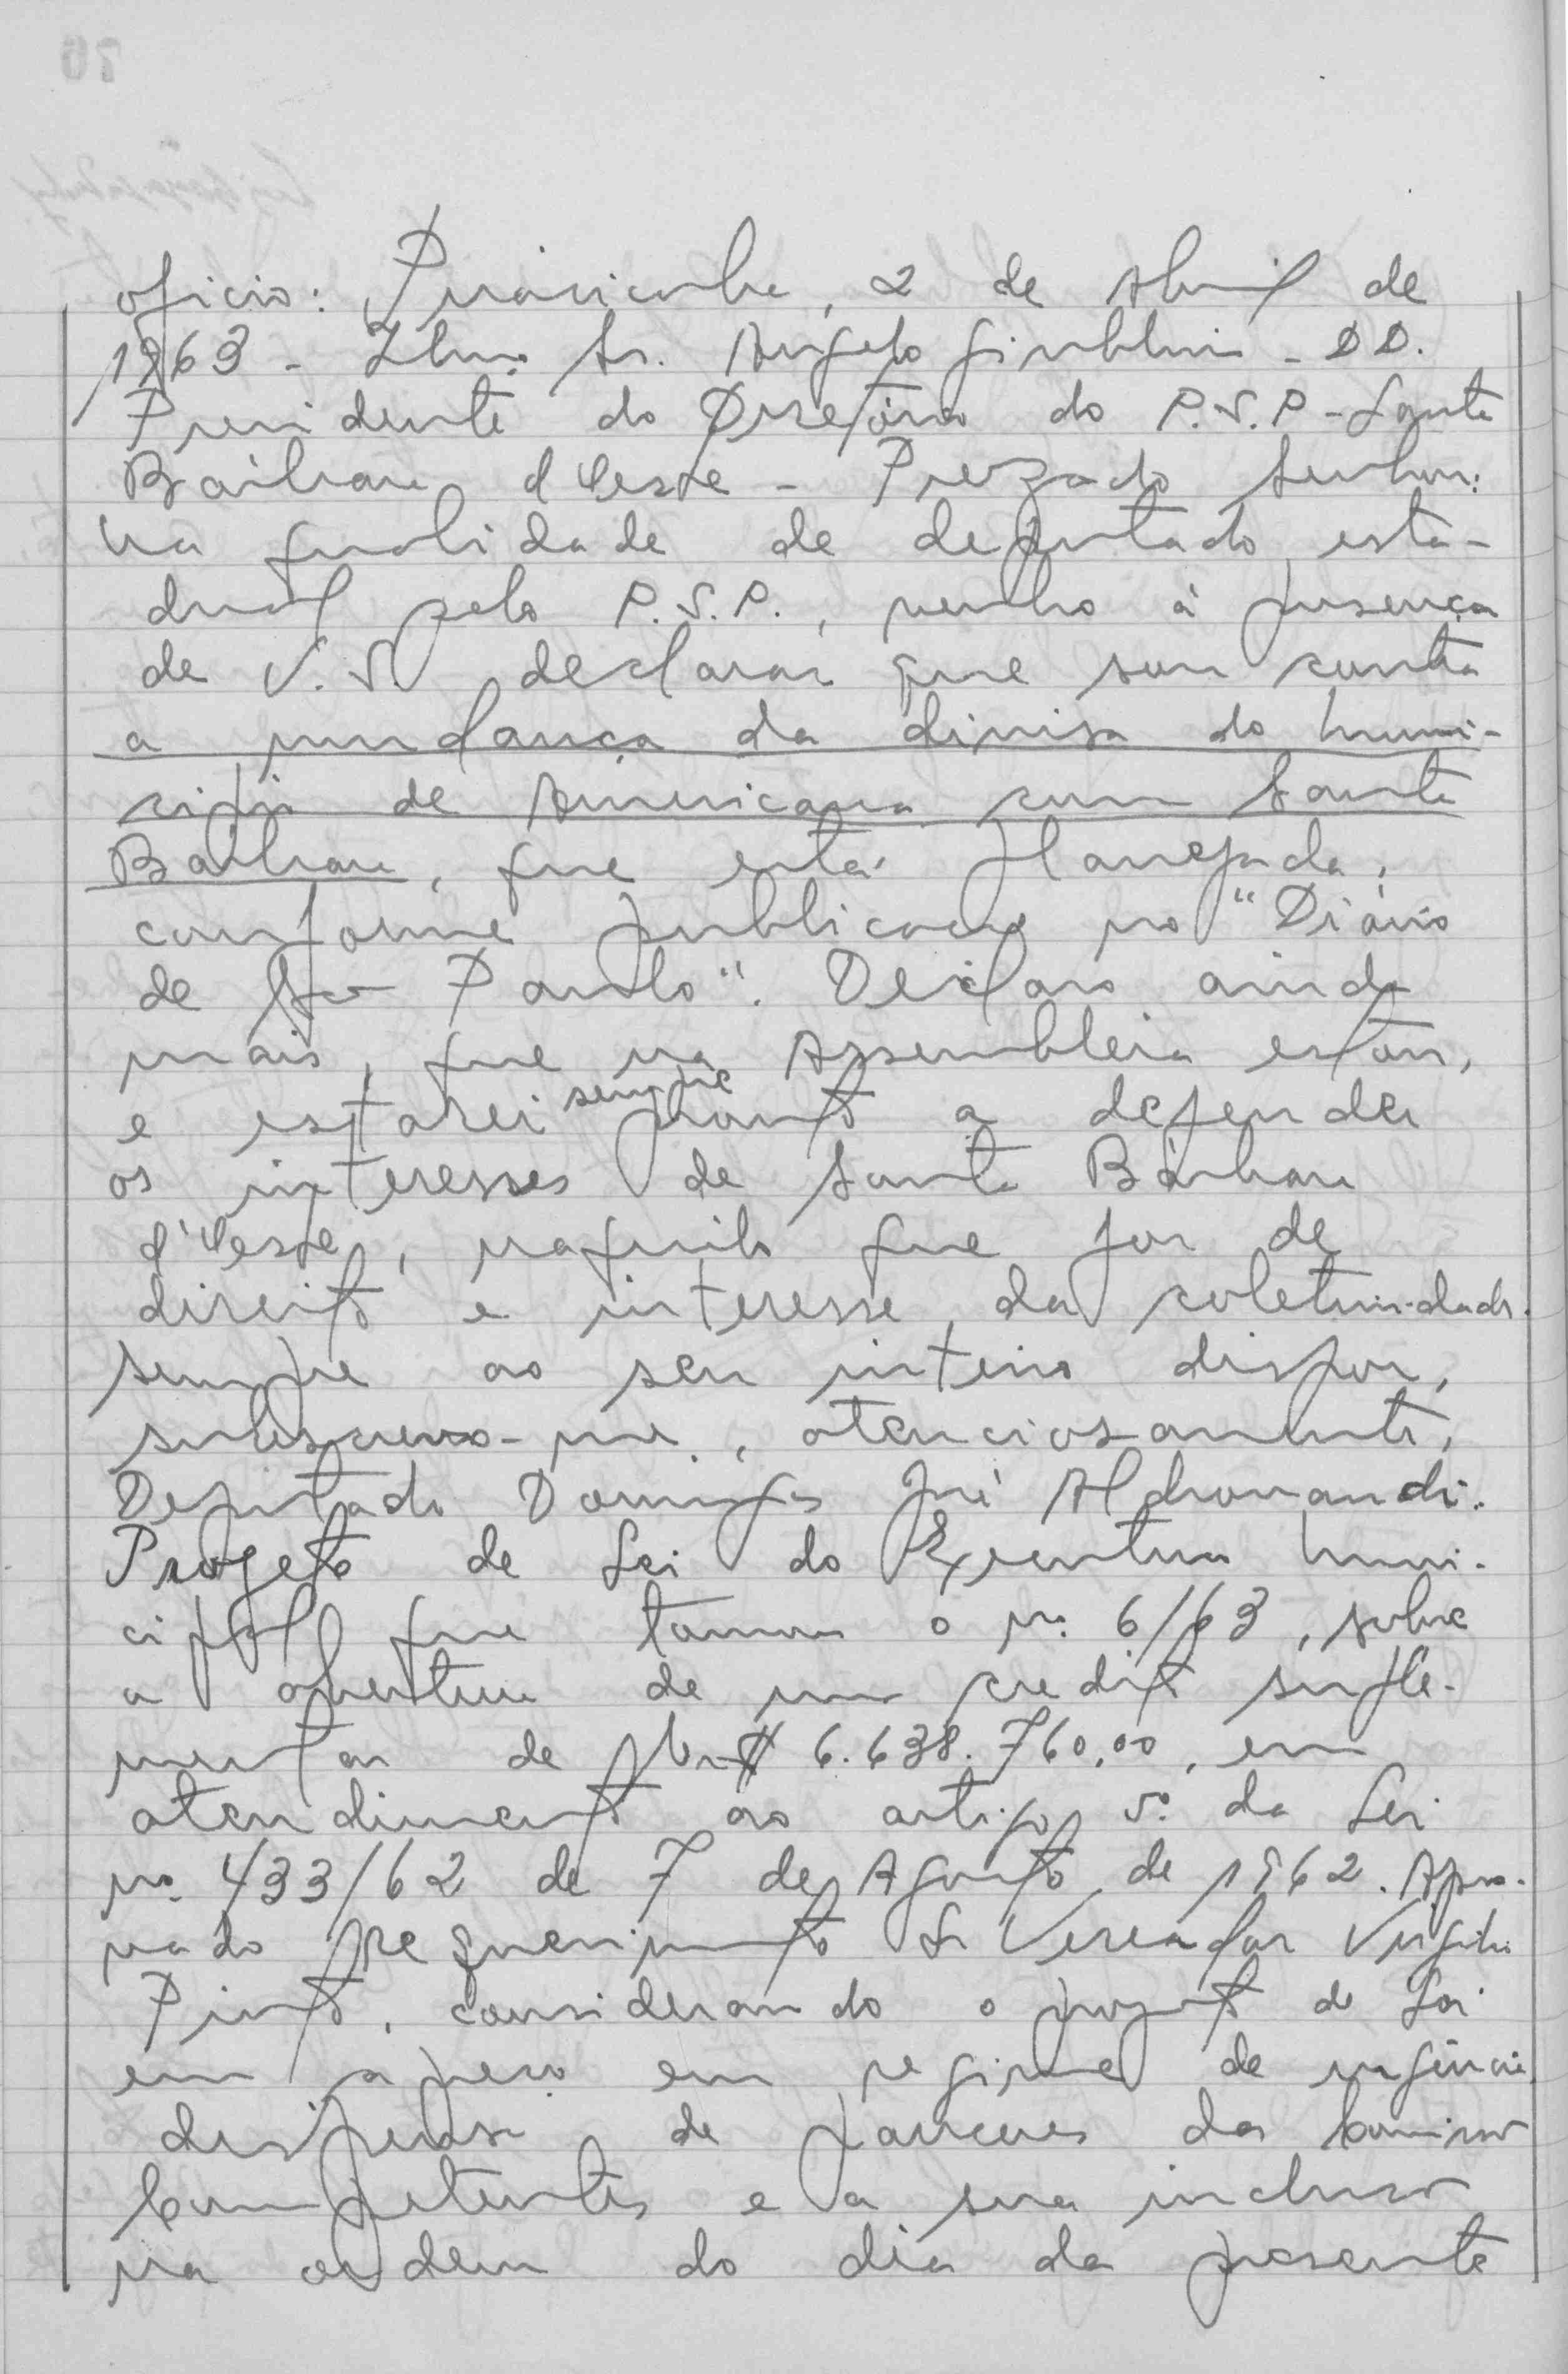 oficio: Piracicaba, 2 de Abril de
1963 - Ilmo. Sr. Angelo Giubbina - DD.
Presidente do Diretório do P.S.P - Santa
Bárbara d'Oeste - Prezado Senhor:
na qualidade de deputado esta-
dual pelo P.S.P., venho à presença
de V.S. declarar que sou contra
a mudança da divisa do muni-
cipio de Americana com Santa
Bárbara, que está planejada,
conforme publicação no "Diário
de São Paulo". Declaro ainda
mais, que na Assembléia estou,
e estarei sempre pronto a defender
os interesses de Santa Bárbara
d'Oeste, naquilo que for de
direito e interesse da coletividade.
sempre ao seu inteiro dispor,
subscrevo-me, atenciosamente,
Deputado Domingos José Aldrovandi.
Projeto de Lei do Executivo muni-
cipal que tomou o nº 6/63, sobre
a abertura de um credito suple-
mentar de Cr$ 6.638.760,00, em
atendimento ao artigo 5º da Lei
nº 433/62 de 7 de Agosto de 1962. Apro-
vado requerimento Sr Vereador Virgilio
Pinto, considerando o projeto de Lei
em apreço em regime de urgência,
dispensa de pareceres da Comissão
Competentes e a sua inclusão
na ordem do dia da presente